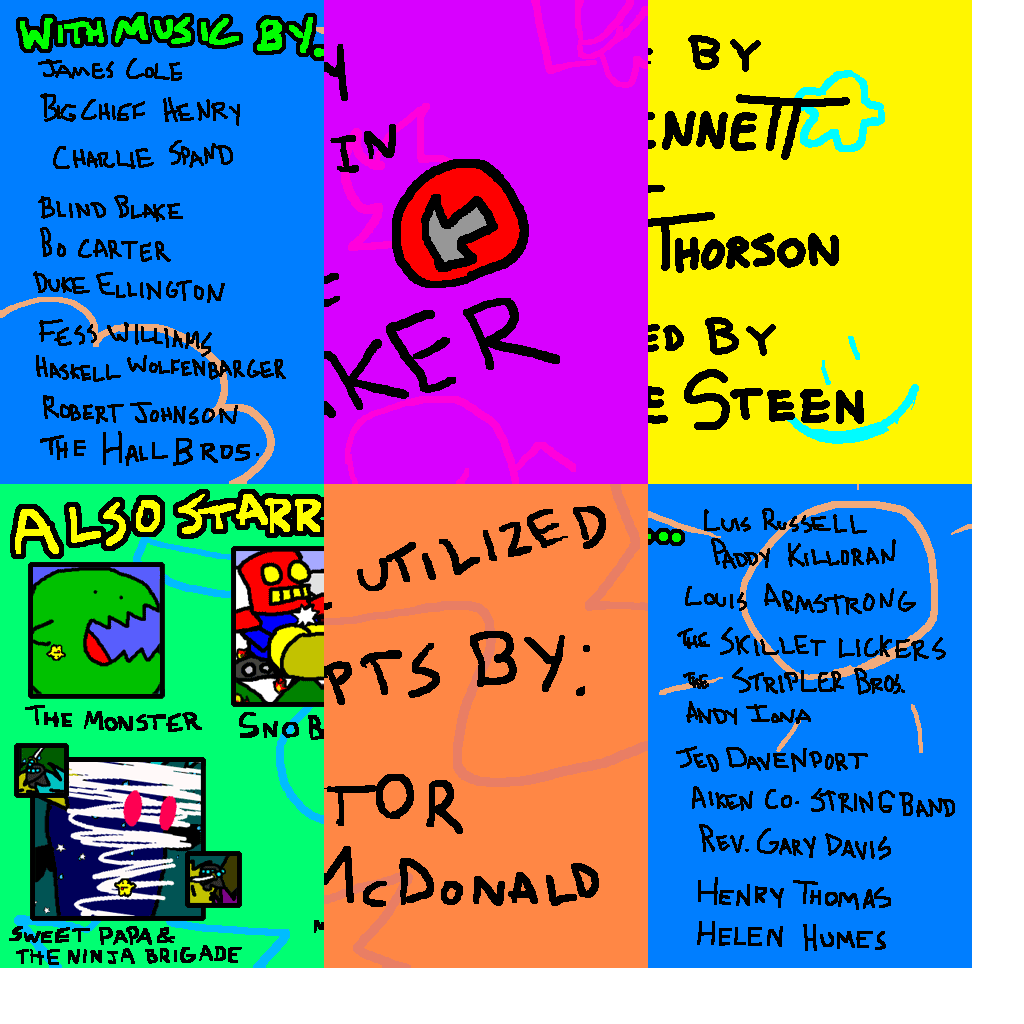 WITH MUSIC BY.
JAMES COLE
BIG CHIEF HENRY
CHARLIE SPAND
BLIND BLAKE
BO CARTER
DUKE ELLINGTON
FESS WILLIAMS
HASKELL WOLFENBARGER
ROBERT JOHNSON
THE HALL BROS.
Y
IN
E
KER
E BY
ENNETT
T
THORSON
ED BY
E STEEN
ALSO STARR
THE MONSTER
SNO B
SWEET PAPA &
THE NINJA BRIGADE
UTILIZED
PTS BY:
TOR
McDONALD
...
LUIS RUSSELL
PADDY KILLORAN
LOUIS ARMSTRONG
THE SKILLET LICKERS
THE STRIPLER BROS.
ANDY IONA
JED DAVENPORT
AIKEN CO. STRING BAND
REV. GARY DAVIS
HENRY THOMAS
HELEN HUMES